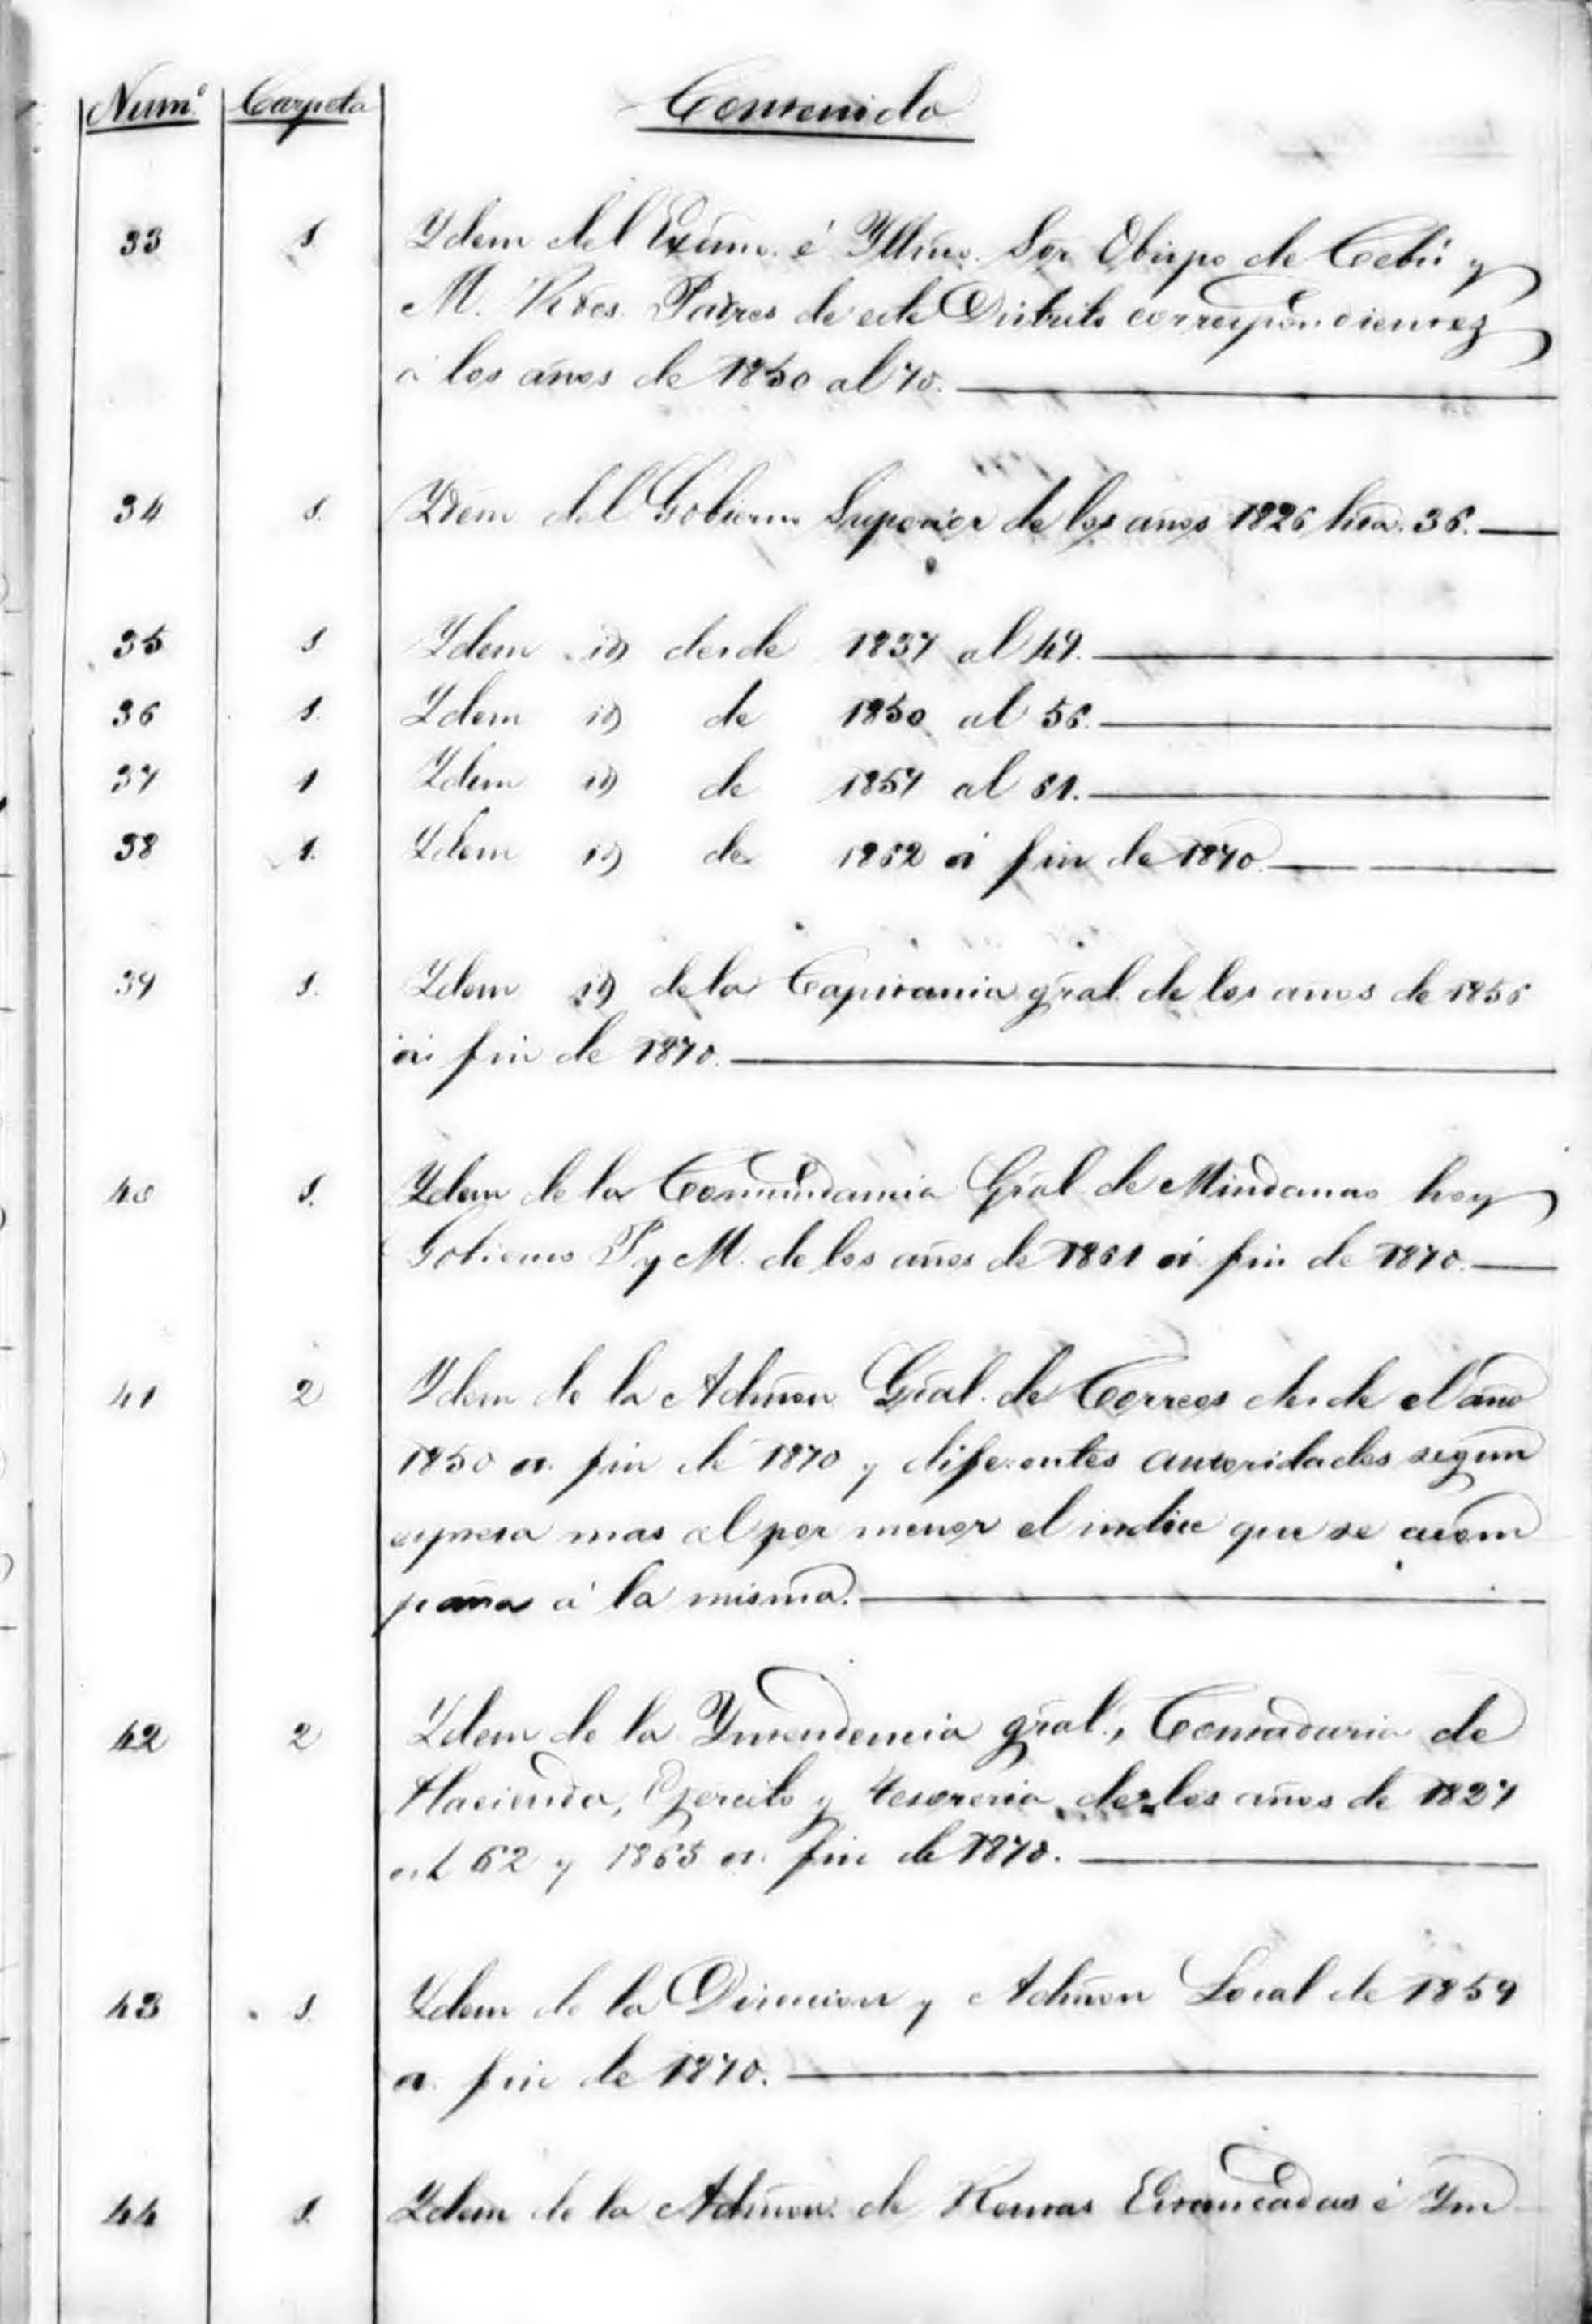 Num.º Carpeta Contenido
33 1. Ydem del Excmo. é Yllmo. Sor Obispo de Cebú y
M. Rdos. Padres de este Distrito correspondientes
á los años de 1850 al 70.
34 1. Ydem del Gobierno Superior de los años 1826 hta. 36.
35 1 Ydem id desde 1837 al 49.
36 1. Ydem id de 1850 al 56.
37 1 Ydem id de 1857 al 61.
38 1. Ydem id de 1862 á fin de 1870
39 1. Ydem id de la Capitania gral. de los años de 1856
á fin de 1870.
40 1. Ydem de la Comandancia Gral. de Mindanao hoy
Gobierno P. y M. de los años de 1861 á fin de 1870.
41 2 Ydem de la Admon Gral. de Correos desde el año
1850 á fin de 1870 y diferentes autoridades segun
espresa mas al por menor el indice que se acom
paña á la misma.
42 2 Ydem de la Yntendencia gral., Contaduria de
Hacienda, Ejercito y tesoreria de los años de 1827
al 62 y 1863 á fin de 1870.
43 1. Ydem de la Direccion y Admon Local de 1859
á fin de 1870.
44 1. Ydem de la Admon. de Rentas Estancadas é Ym